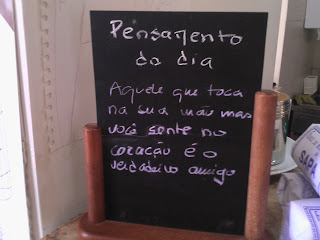 Pensamento
do dia
Aquele que toca
na sua mão mas
você sente no
coração é o
verdadeiro amigo